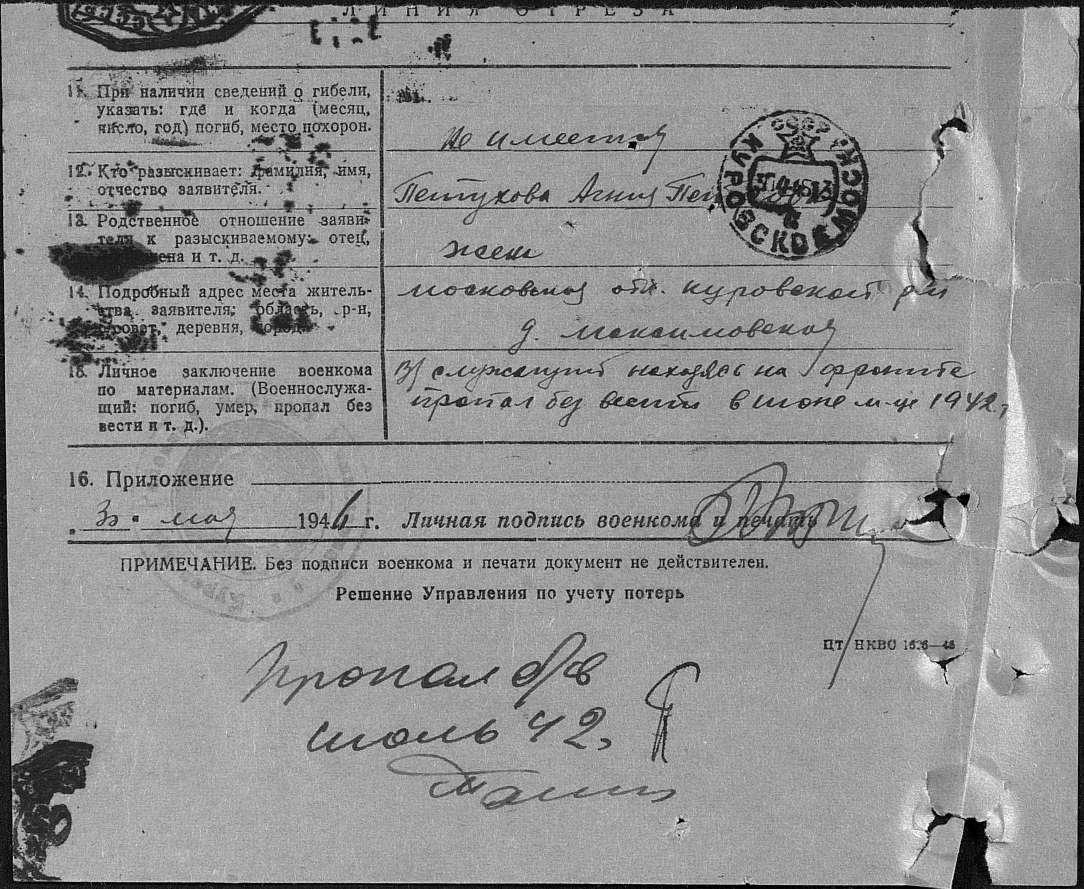 ЛИНИЯ ОТРЕЗА
11. При наличии сведений о гибели,
указать: где и когда (месяц,
число, год) погиб, место похорон.
не имеется
12. Кто разыскивает: фамилия, имя,
отчество заявителя.
Петухова Агния
13. Родственное отношение заяви-
теля к разыскиваемому: отец,
жена и т. д.
жена
14. Подробный адрес места житель-
ства заявителя; область, р-н,
совет, деревня, город.
Московская обл. Куровской р-н
д. Максимовская
15. Личное заключение военкома
по материалам. (Военнослужа-
щий: погиб, умер, пропал без
вести и т. д.).
в/служащий находясь на фронте
пропал без вести в июне м-це 1942 г
СССР КУРОВСКОЕ МОСК.
16. Приложение
30 мая 1946 г. Личная подпись военкома и печать
ПРИМЕЧАНИЕ. Без подписи военкома и печати документ не действителен.
Решение Управления по учету потерь
ЦТ НКВО 1626—46
Пропал б/в
июль 42.